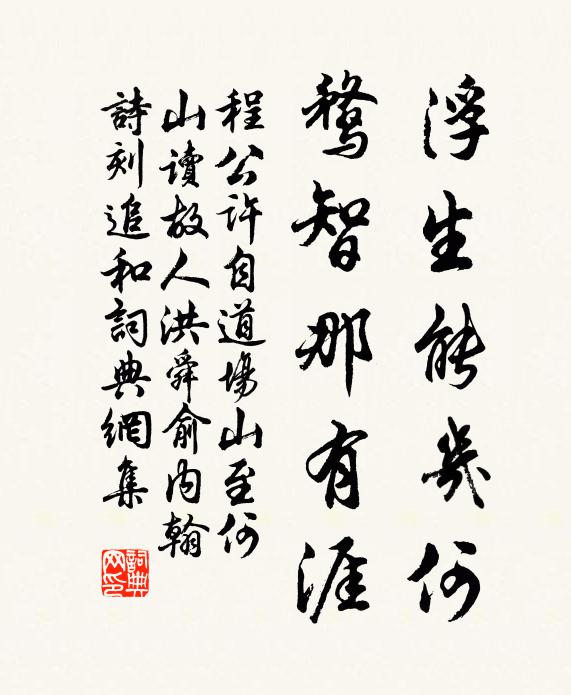 浮生能幾何
騖智那有涯
程公許自道場山至何
山讀故人洪舜俞內翰
詩刻追和詞典網集
詞典网印